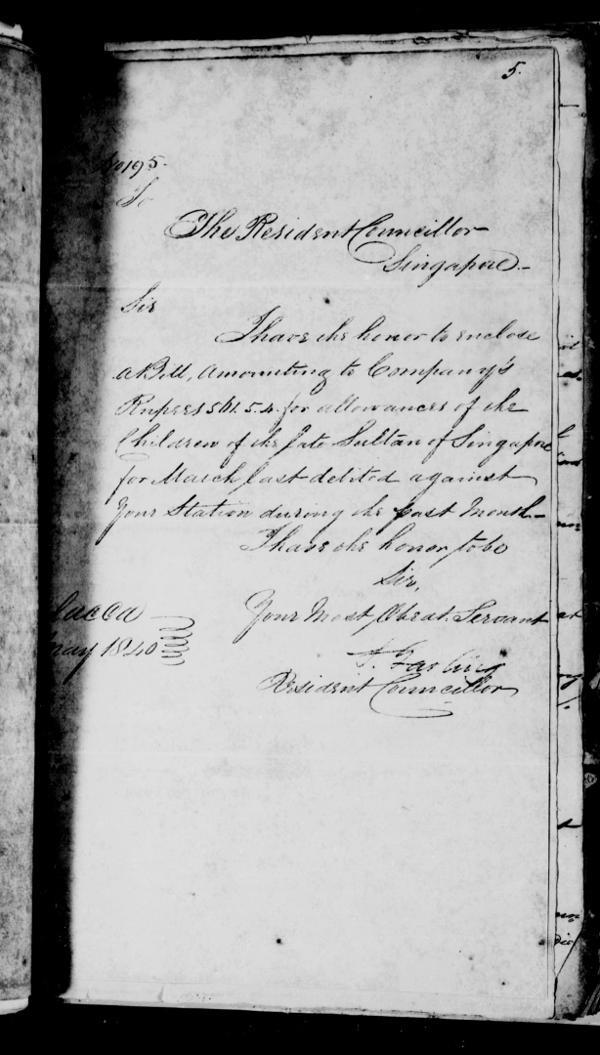 5.
No 195.
To
The Resident Councillor
Singapore
Sir
I have the honor to enclose
a Bill, Amounting to Company's
Rupees 561.5.4 for allowances of the
Children of the late Sultan of Singapore
for March last debited against
Your Station during the past Month
I have the honor to be
Sir,
Your Most Obedt. Servant
lacca
May 1840
Garling
Resident Councillor